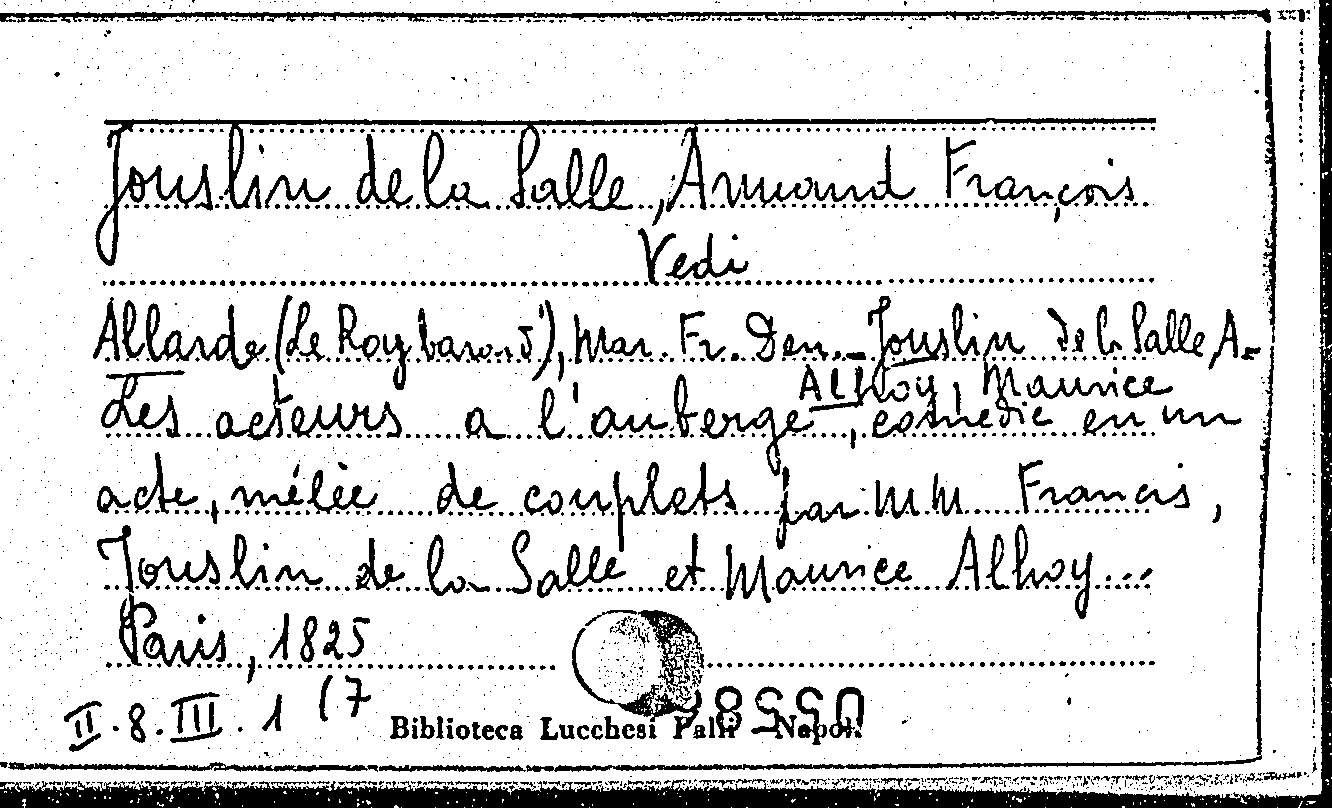 Jouslin de la Salle, Armand François
Vedi
Allarde (Le Roy baron d'), Mar. Fr. Den. - Jouslin de la Salle, A. -
Alhoy, Maurice
Les acteurs a l'auberge, comédie en un
acte, mêlée de couplets par MM Francis,
Jouslin de la Salle et Maurice Alhoy...
Paris, 1825
II. 8. III. 1 (7
Biblioteca Lucchesi Palli - Napoli